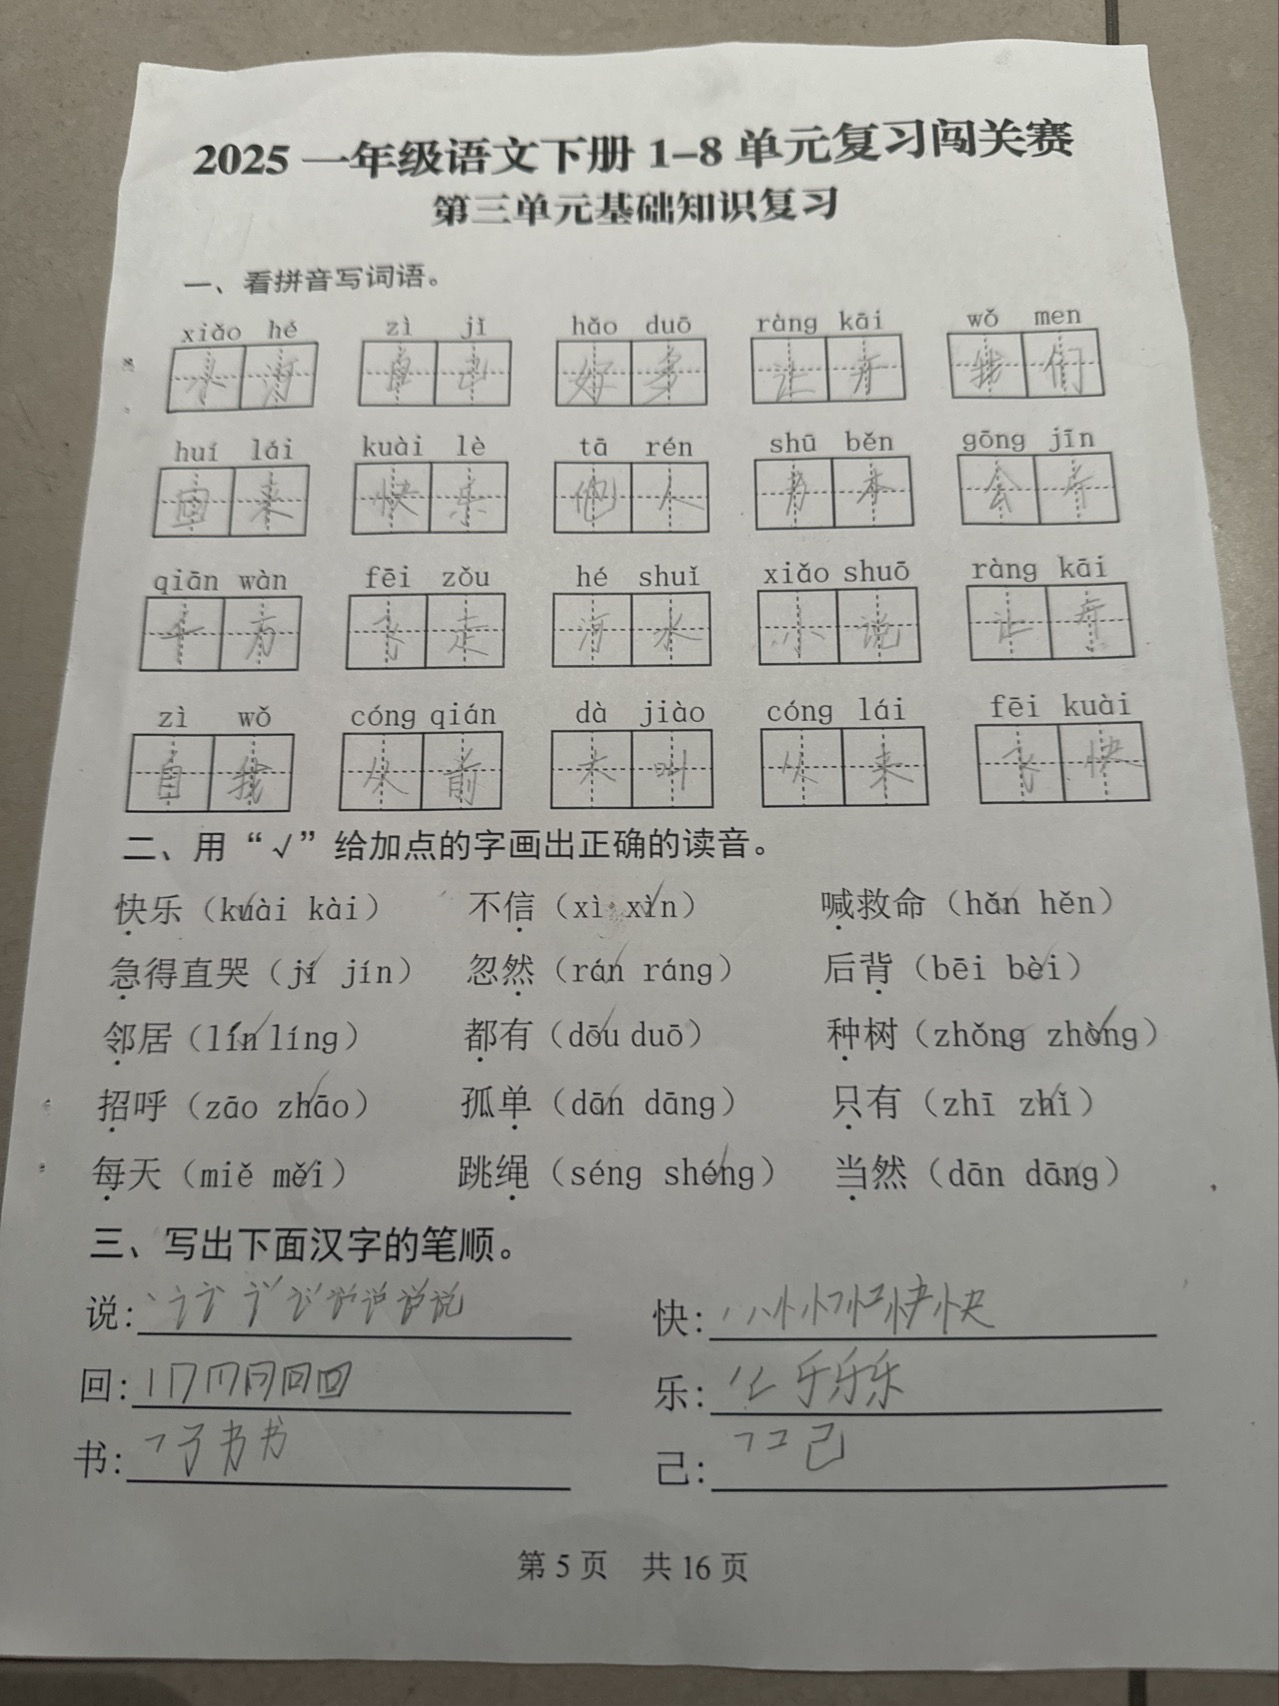 2025一年级语文下册1-8单元复习闯关赛
第三单元基础知识复习
一、看拼音写词语。
xiǎo hé zì jǐ hǎo duō ràng kāi wǒ men
小河 自己 好多 让开 我们
huí lái kuài lè tā rén shū běn gōng jīn
回来 快乐 他人 书本 公斤
qiān wàn fēi zǒu hé shuǐ xiǎo shuō ràng kāi
千万 飞走 河水 小说 让开
zì wǒ cóng qián dà jiào cóng lái fēi kuài
自我 从前 大叫 从来 飞快
二、用“√”给加点的字画出正确的读音。
快乐（kuài kài） 不信（xì xìn） 喊救命（hǎn hěn）
急得直哭（jí jín） 忽然（rán ráng） 后背（bēi bèi）
邻居（lín líng） 都有（dōu duō） 种树（zhǒng zhòng）
招呼（zāo zhāo） 孤单（dān dāng） 只有（zhī zhǐ）
每天（miě měi） 跳绳（séng shéng） 当然（dān dāng）
三、写出下面汉字的笔顺。
说： 快：
回： 乐：
书： 己：
第5页 共16页